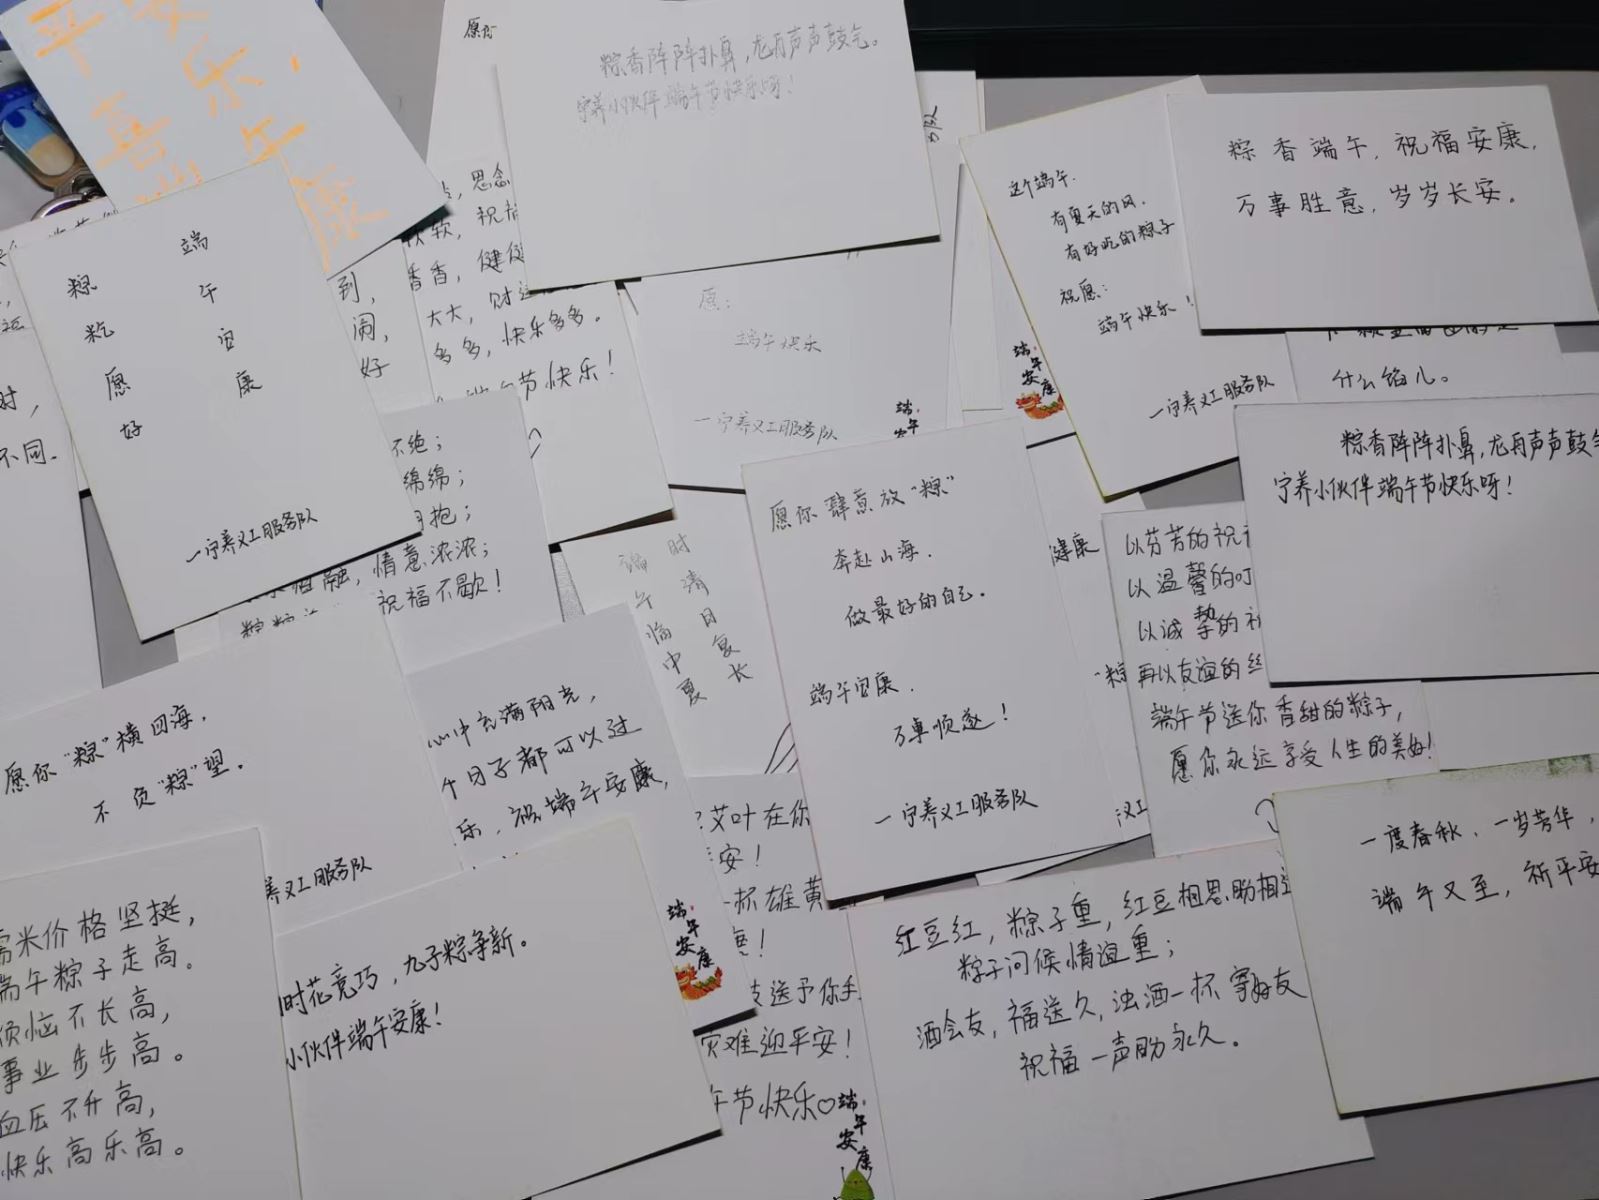 平安
乐，
喜
端午
康
愿你
粽香阵阵扑鼻，龙舟声声鼓气。
宁养小伙伴端午节快乐呀！
粽香端午，祝福安康，
万事胜意，岁岁长安。
这个端午，
有夏天的风，
有好吃的粽子
祝愿：
端午快乐！
—宁养义工服务队
什么馅儿。
端午宜康
粽粽愿好
—宁养义工服务队
到，
闹，
好
时，
不同.
思念
软软，祝福
香香，健健
大大，财运
多多，快乐多多。
节快乐！
愿：
端午快乐
—宁养义工服务队
端午
端午安康
不绝；
绵绵；
抱；
融，情意浓浓；
祝福不歇！
时清日复长
端午临中夏
愿你肆意放“粽”
奔赴山海.
做最好的自己。
端午宜康.
万事顺遂！
—宁养义工服务队
健康
以芬芳的祝
以温馨的叮
以诚挚的祝
再以友谊的丝
端午节送你香甜的粽子，
愿你永远享受人生的美好！
粽香阵阵扑鼻，龙舟声声鼓气
宁养小伙伴端午节快乐呀！
愿你“粽”横四海，
不负“粽”望。
养义工服务队
心中充满阳光，
个日子都可以过
乐，祝端午安康，
端午安康
艾叶在你
安！
一杯雄黄
送予你手
灾难迎平安！
午节快乐♡
端午安康
红豆红，粽子重，红豆相思盼相逢
粽子问候情谊重；
酒会友，福送久，浊酒一杯寄好友
祝福一声助永久。
一度春秋、一岁芳华，
端午又至，祈平安
糯米价格坚挺，
端午粽子走高。
烦恼不长高，
事业步步高。
血压不升高，
快乐高乐高。
时花竞巧，九子粽争新。
小伙伴端午安康！